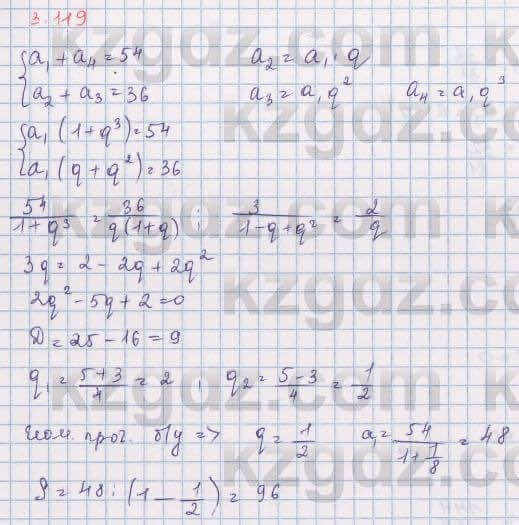 3.119
{a₁ + a₄ = 54    a₂ = a₁ · q
{a₂ + a₃ = 36    a₃ = a₁q²    a₄ = a₁q³
{a₁(1+q³) = 54
{a₁(q+q²) = 36
54/(1+q³) = 36/(q(1+q)) ; 3/(1-q+q²) = 2/q
3q = 2 - 2q + 2q²
2q² - 5q + 2 = 0
D = 25 - 16 = 9
q₁ = (5+3)/4 = 2 ; q₂ = (5-3)/4 = 1/2
геом. прог. б/у => q = 1/2    a₁ = 54/(1+1/8) = 48
S = 48 : (1 - 1/2) = 96
kzgdz.com